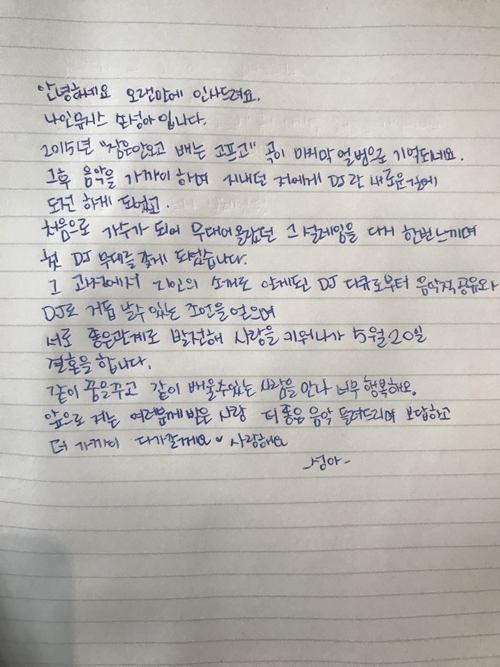 안녕하세요 오랜만에 인사드려요.
나인뮤지스 손성아입니다.
2015년 "잠은안오고 배는 고프고" 곡이 마지막 앨범으로 기억되네요.
그후 음악을 가까이하며 지내던 저에게 DJ란 새로운길에
도전 하게 되었고.
처음으로 가수가 되어 무대에올랐던 그 설레임을 다시 한번느끼며
첫 DJ 무대를 갖게 되었습니다.
그 과정에서 지인의 소개로 알게된 DJ 다큐로부터 음악적공유와
DJ로 거듭 날수있는 조언을얻으며
서로 좋은관계로 발전해 사랑을 키워나가 5월20일
결혼을 합니다.
같이 꿈을꾸고 같이 배울수있는 사람을 만나 너무 행복해요.
앞으로 저는 여러분께 받은 사랑 더 좋은 음악 들려드리며 보답하고
더 가까이 다가갈게요 ♥ 사랑해요
-성아-